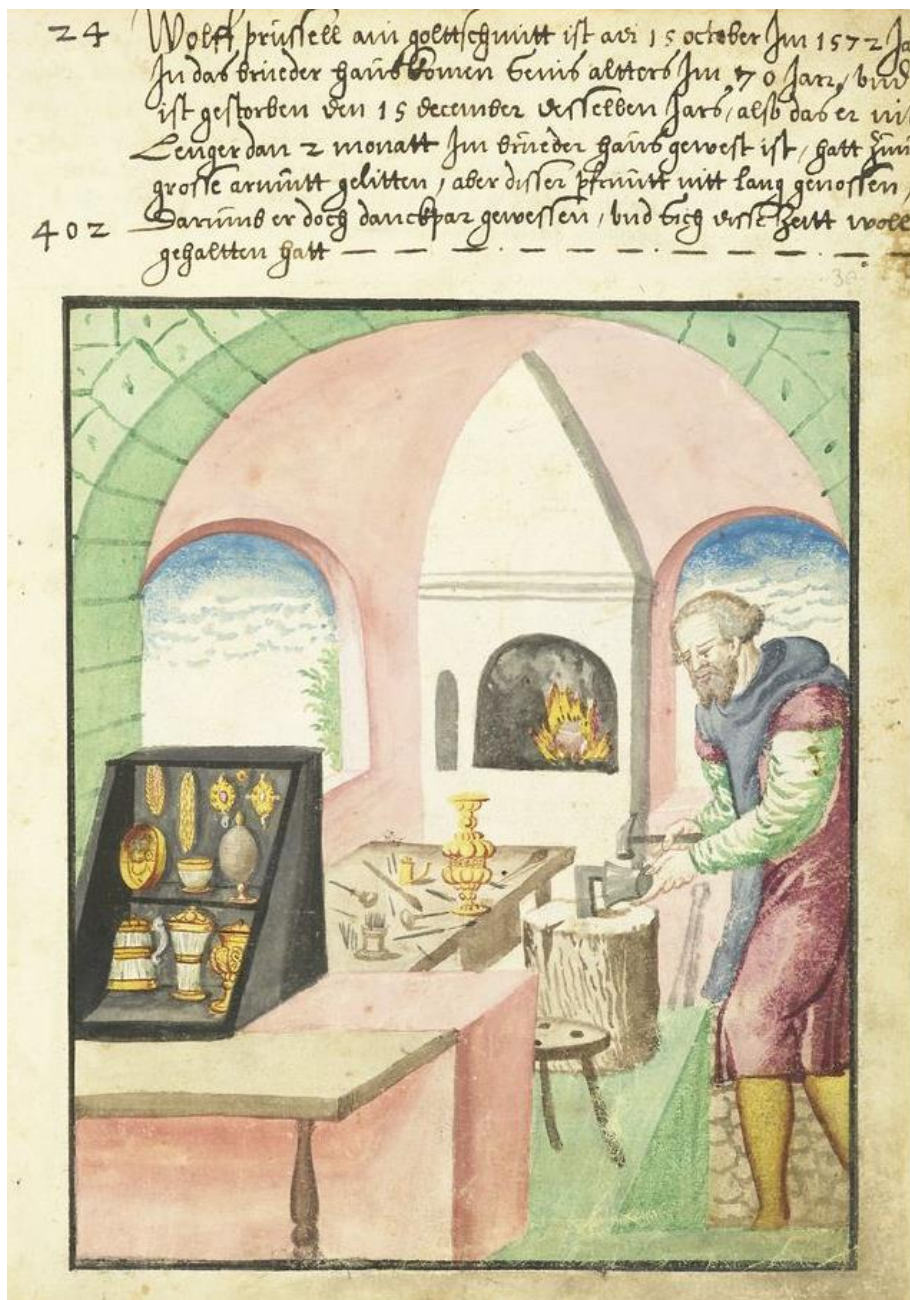 24 Wolff prüssell ain golttschmitt ist adi 15 october Im 1572 Ja
In das brüeder haüs komen seins altters Im 70 Jarr, vnd
ist gestorben den 15 december desselben Jars, also das er ni
Lenger dan 2 monatt Im brüeder haüs gewest ist, hatt
grosse armütt gelitten, aber disser pfrüntt nitt lang genossen,
402 Darümb er doch danckpar gewessen, vnd sich disse Zeitt woll
gehaltten hatt — — — — — — — —
30